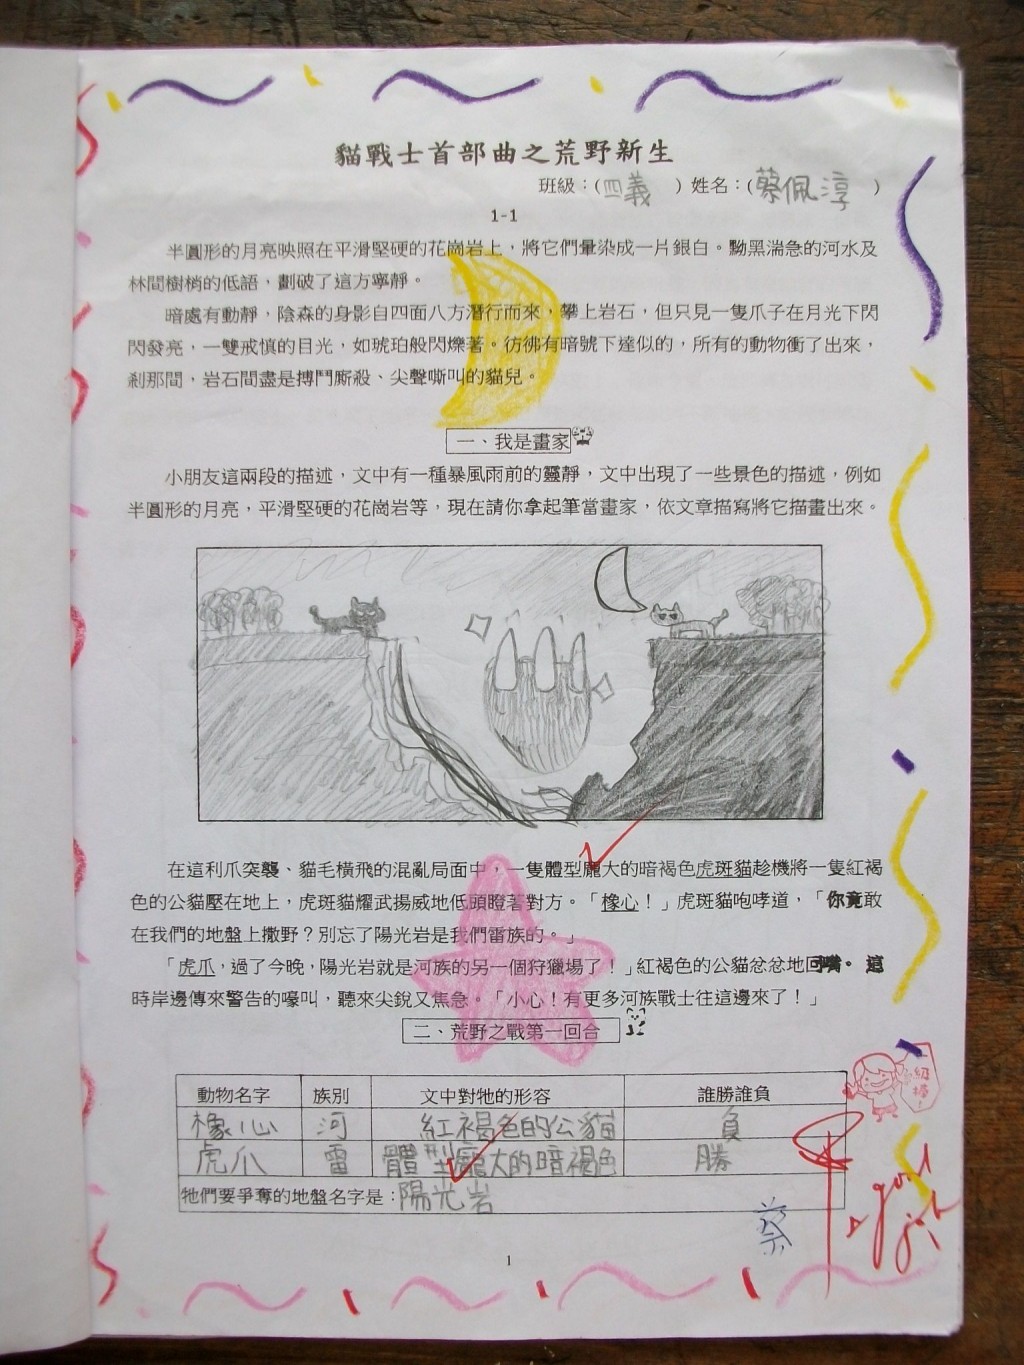 貓戰士首部曲之荒野新生
班級：(四義　) 姓名：(蔡佩淳　)
1-1
半圓形的月亮映照在平滑堅硬的花崗岩上，將它們暈染成一片銀白。黝黑湍急的河水及
林間樹梢的低語，劃破了這方寧靜。
暗處有動靜，陰森的身影自四面八方潛行而來，攀上岩石，但只見一隻爪子在月光下閃
閃發亮，一雙戒慎的目光，如琥珀般閃爍著。彷彿有暗號下達似的，所有的動物衝了出來，
剎那間，岩石間盡是搏鬥廝殺、尖聲嘶叫的貓兒。
一、我是畫家
小朋友這兩段的描述，文中有一種暴風雨前的靈靜，文中出現了一些景色的描述，例如
半圓形的月亮，平滑堅硬的花崗岩等，現在請你拿起筆當畫家，依文章描寫將它描畫出來。
在這利爪突襲、貓毛橫飛的混亂局面中，一隻體型龐大的暗褐色虎斑貓趁機將一隻紅褐
色的公貓壓在地上，虎斑貓耀武揚威地低頭瞪著對方。「橡心！」虎斑貓咆哮道，「你竟敢
在我們的地盤上撒野？別忘了陽光岩是我們雷族的。」
「虎爪，過了今晚，陽光岩就是河族的另一個狩獵場了！」紅褐色的公貓忿忿地回嘴。這
時岸邊傳來警告的嚎叫，聽來尖銳又焦急。「小心！有更多河族戰士往這邊來了！」
二、荒野之戰第一回合
動物名字 族別 文中對牠的形容 誰勝誰負
橡心 河 紅褐色的公貓 負
虎爪 雷 體型龐大的暗褐色 勝
牠們要爭奪的地盤名字是：陽光岩
蔡
good
job
1